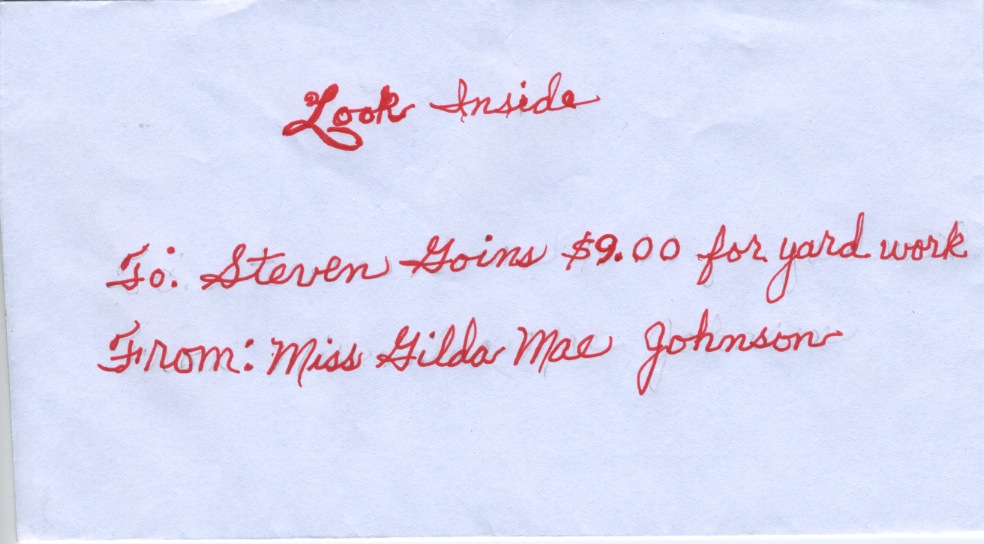 Look Inside
To: Steven Goins $9.00 for yard work
From: Miss Gilda Mae Johnson